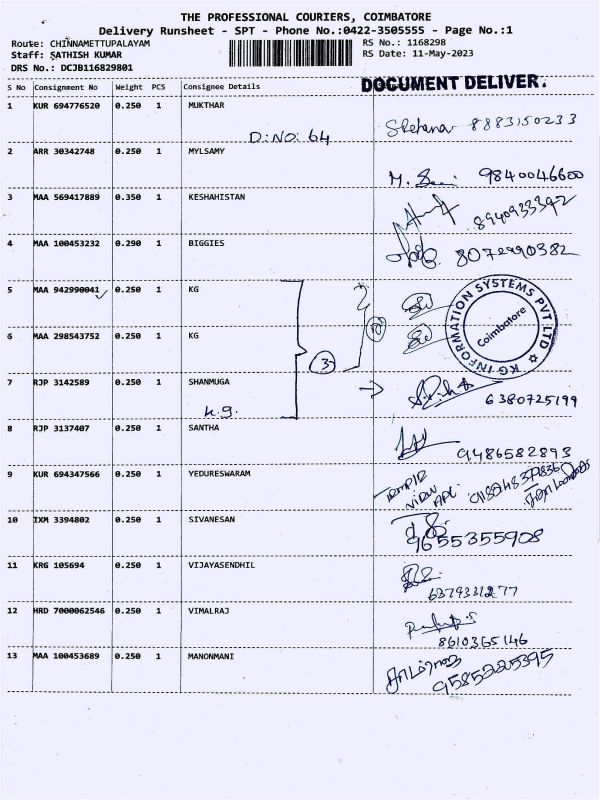 THE PROFESSIONAL COURIERS, COIMBATORE
Delivery Runsheet - SPT - Phone No.:0422-3505555 - Page No.:1
Route: CHINNAMETTUPALAYAM RS No.: 1168298
Staff: SATHISH KUMAR RS Date: 11-May-2023
DRS No.: DCJB116829801
DOCUMENT DELIVER.
S No Consignment No Weight PCS Consignee Details
1 KUR 694776520 0.250 1 MUKTHAR
D.NO: 64 8883150233
2 ARR 30342748 0.250 1 MYLSAMY
9840046600
3 MAA 569417889 0.350 1 KESHAHISTAN
8940933392
4 MAA 100453232 0.290 1 BIGGIES
8072990382
5 MAA 942990041 0.250 1 KG
KG INFORMATION SYSTEMS PVT LTD
Coimbatore
6 MAA 298543752 0.250 1 KG
3
7 RJP 3142589 0.250 1 SHANMUGA
K.g. 6380725199
8 RJP 3137407 0.250 1 SANTHA
9486582893
9 KUR 694347566 0.250 1 YEDURESWARAM
10 IXM 3394802 0.250 1 SIVANESAN
9655355908
11 KRG 105694 0.250 1 VIJAYASENDHIL
6379331277
12 HRD 7000062546 0.250 1 VIMALRAJ
8610365146
13 MAA 100453689 0.250 1 MANONMANI
9585225395